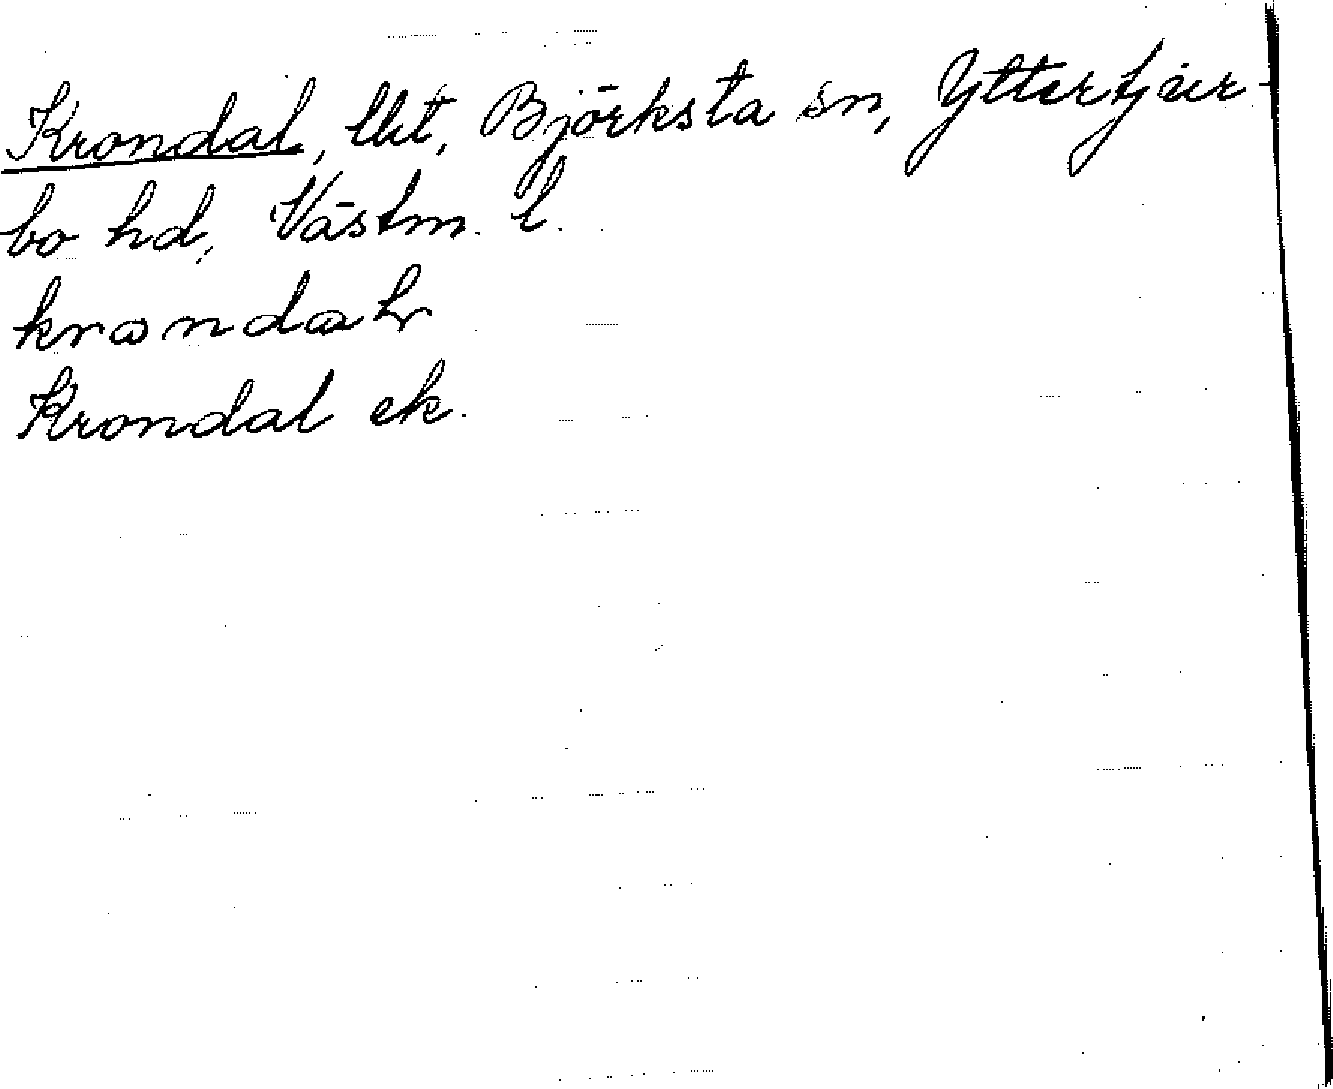 Krondal, lht, Björksta sn, Yttertjur-
bo hd, Västm. l.
Krondal ek.